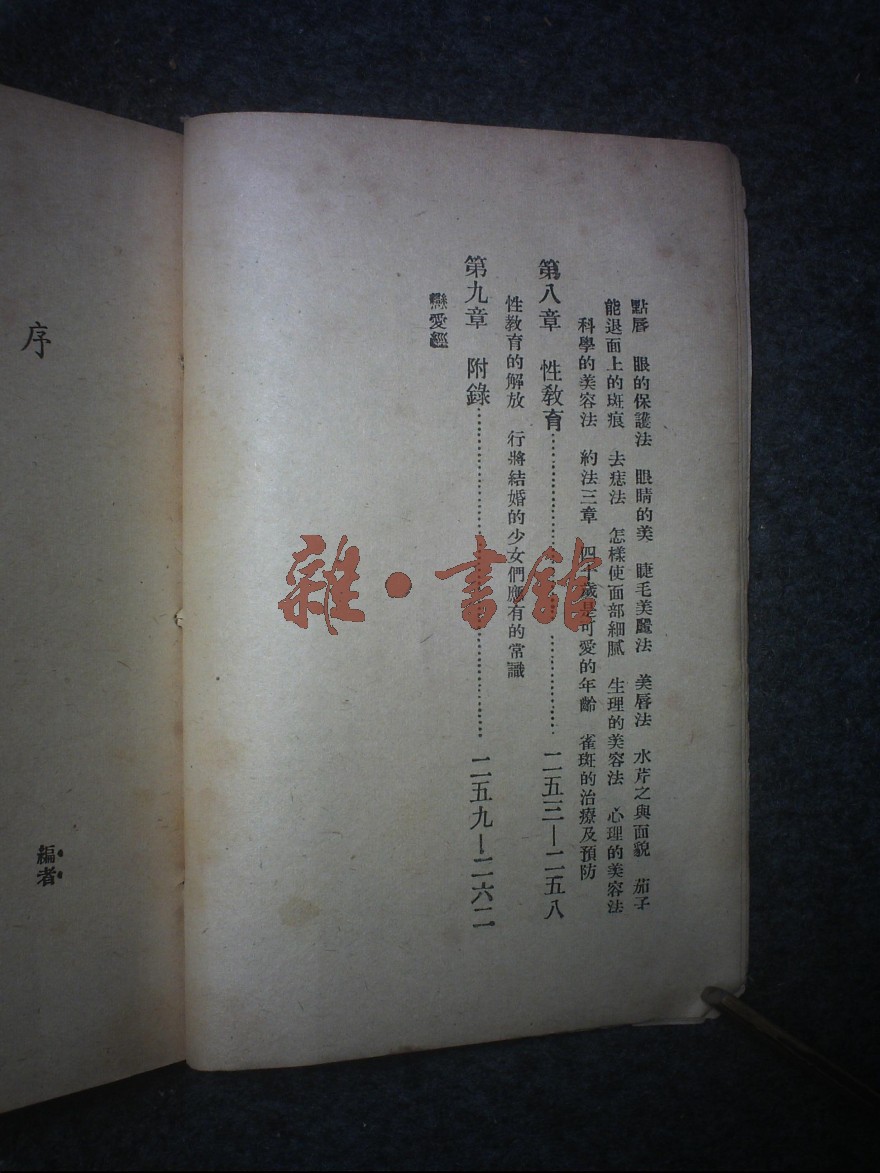 點唇　眼的保護法　眼睛的美　睫毛美麗法　美唇法　水芹之與面貌　茄子
能退面上的斑痕　去痣法　怎樣使面部細膩　生理的美容法　心理的美容法
科學的美容法　約法三章　四十歲是可愛的年齡　雀斑的治療及預防
第八章　性教育…………………………二五三—二五八
性教育的解放　行將結婚的少女們應有的常識
第九章　附錄…………………………二五九—二六二
戀愛經
序
編者
雜·書館